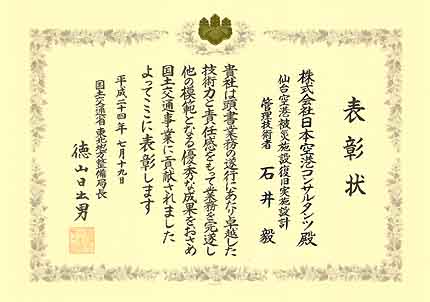 表彰状
株式会社日本空港コンサルタンツ殿
仙台空港被災施設復旧実施設計
管理技術者 石井 毅
貴社は頭書業務の遂行にあたり卓越した
技術力と責任感をもって業務を完遂し
他の模範となる優秀な成果をおさめ
国土交通事業に貢献されました
よってここに表彰します
平成二十四年七月十九日
国土交通省東北地方整備局長
徳山日出男